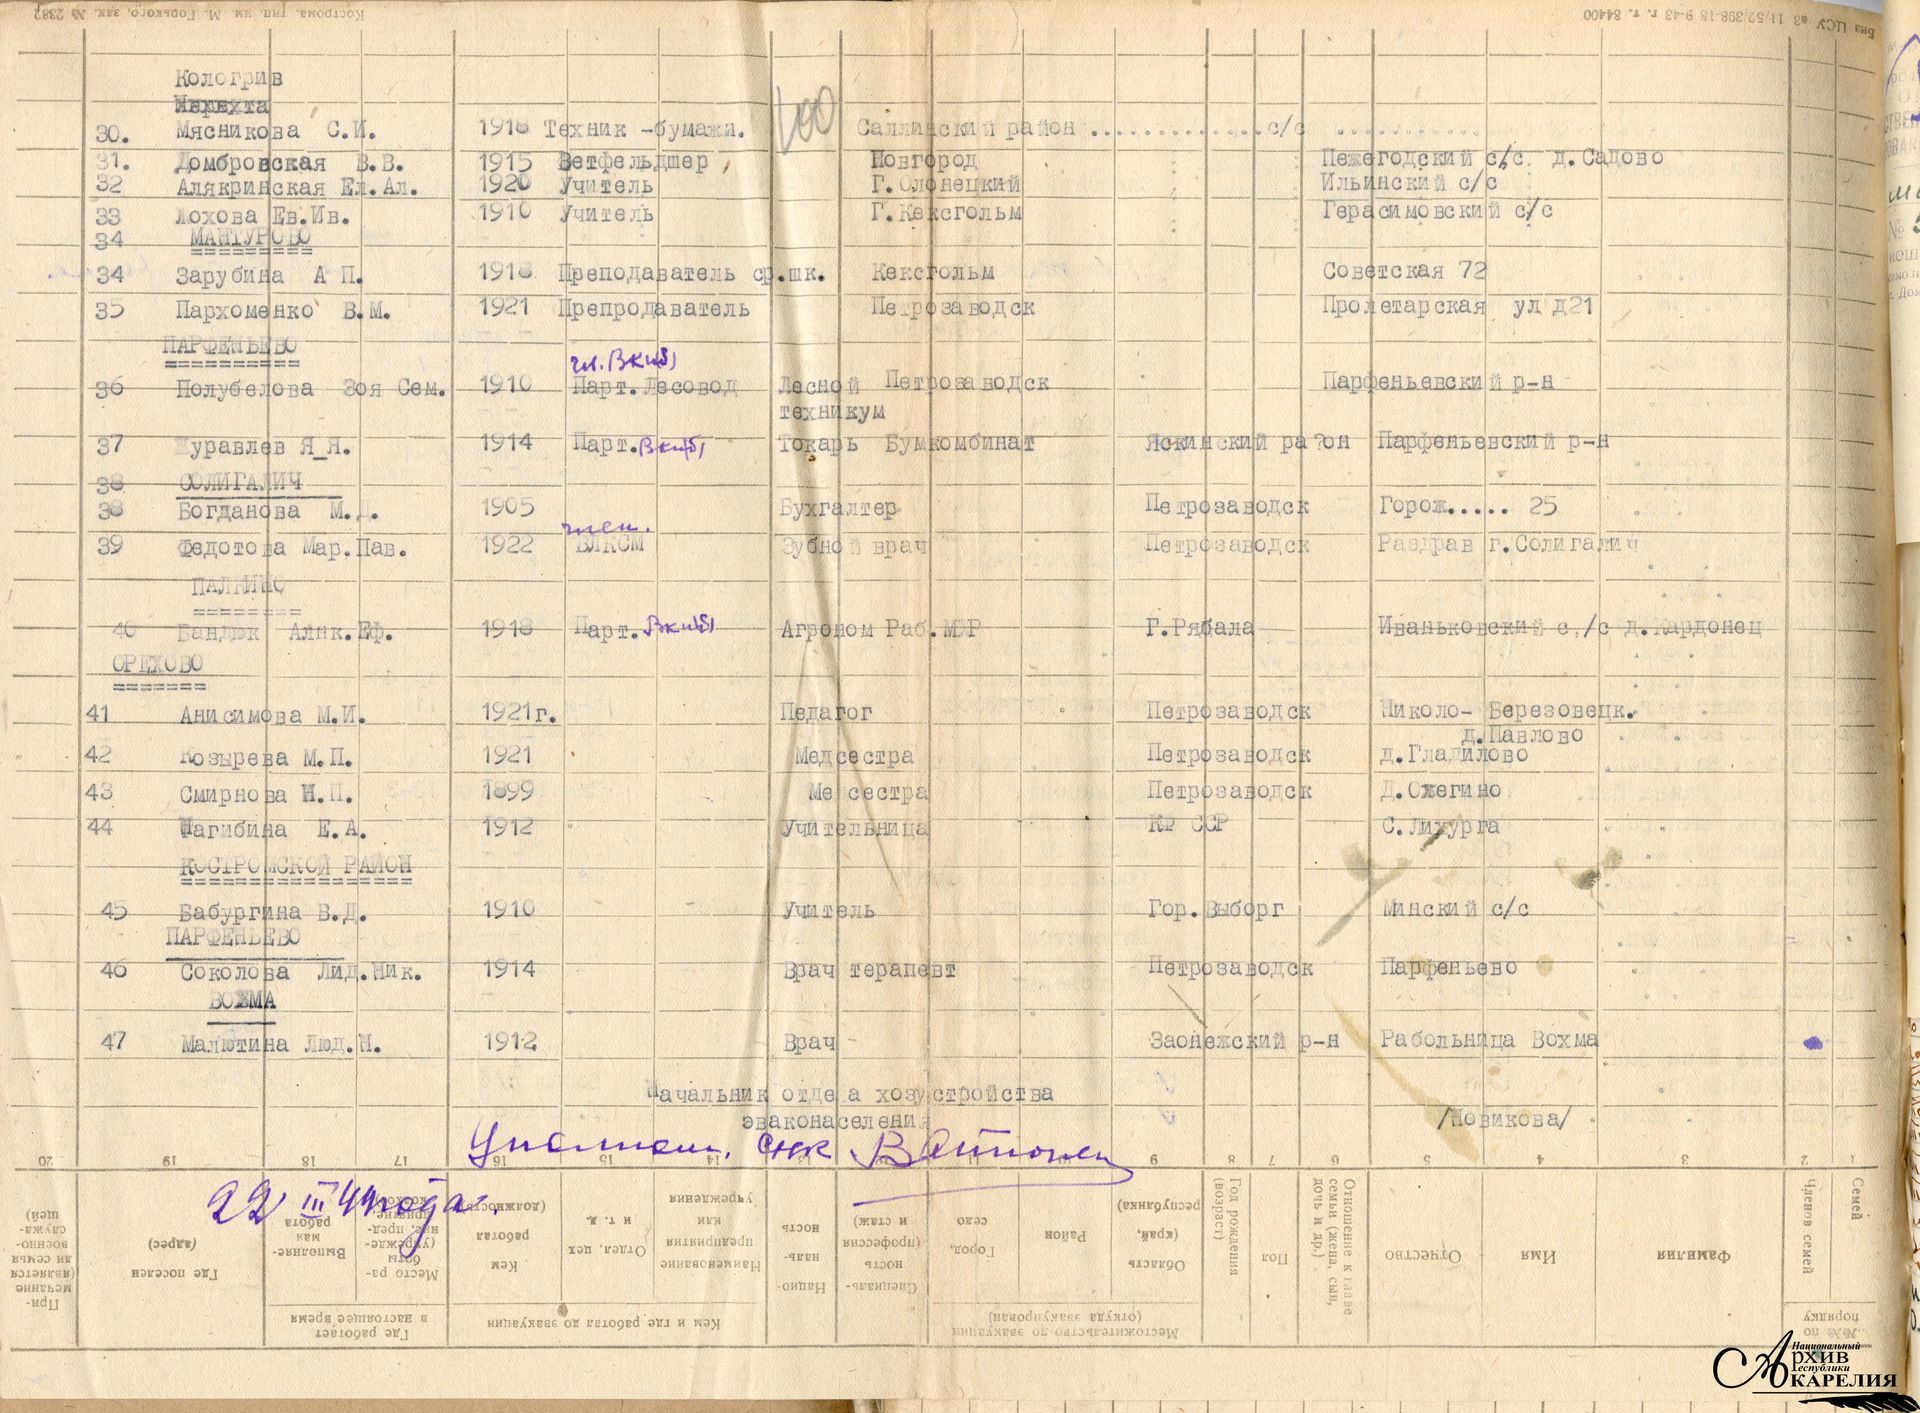 Кострома, тип. им. М. Горького, зак. № 2382
Кологрив
Нерехта
30. Мясникова С.И. 1918 Техник -бумажн. 100 Саллинский район .............. с/с ............
31. Домбровская В.В. 1915 Ветфельдшер , Новгород Пежегодский с/с д. Садово
32 Алякринская Ел.Ал. 1920 Учитель Г.Олонецкий Ильинский с/с
33 Лохова Ев.Ив. 1910 Учитель Г.Кексгольм Герасимовский с/с
34 МАНТУРОВО
34 Зарубина А П. 1918 Преподаватель ср.шк. Кексгольм Советская 72
35 Пархоменко В.М. 1921 Препродаватель Петрозаводск Пролетарская ул д21
ПАРФЕНЬЕВО
чл. Вкп(б)
36 Полубелова Зоя Сем. 1910 Парт. Лесовод Лесной Петрозаводск Парфеньевский р-н
техникум
37 Журавлев Я_Я. 1914 Парт. Вкп(б) Токарь Бумкомбинат Яскинский ра?он Парфеньевский р-н
38 СОЛИГАЛИЧ
38 Богданова М.Д. 1905 Бухгалтер Петрозаводск Горож..... 25
член.
39 Федотова Мар.Пав. 1922 ВЛКСМ Зубной врач Петрозаводск Раздрав г.Солигалич
ПАЛКИНО
40 Бандюк Алнк.Еф. 1918 Парт. Вкп(б) Агроном Раб. МХР Г.Рябала Иваньковский с,/с д.Кардонец
ОРЕХОВО
41 Анисимова М.И. 1921г. Педагог Петрозаводск Николо- Березовецк.
д.Павлово
42 Козырева М.П. 1921 Медсестра Петрозаводск д.Гладилово
43 Смирнова Н.П. 1899 Ме сестра Петрозаводск Д.Ожегино
44 Шагибина Е.А. 1912 Учительница КФ ССР С.Лихурга
КОСТРОМСКОЙ РАЙОН
45 Бабургина В.Д. 1910 Учитель Гор.Выборг Минский с/с
ПАРФЕНЬЕВО
46 Соколова Лид.Ник. 1914 Врач терапевт Петрозаводск Парфеньево
ВОХМА
47 Малютина Люд.Н. 1912 Врач Заонежский р-н Рабольница Вохма
Начальник отде а хозустройства
эваконаселения /Новикова/
СНК
22 III 44 года.
20 19 18 17 16 15 14 13 11 10 9 8 7 6 5 4 3 2 1
Примечание (является ли семья военнослужащей)
Где поселен (адрес)
Где работает в настоящее время
Выполняемая работа
Место работы (учрежден. пред.
Кем и где работал до эвакуации
Кем работал (должность)
Отдел, цех и т. д.
Наименование предприятия или учреждения
Национальность
Специальность (профессия и стаж)
Местожительство до эвакуации (откуда эвакуирован)
Город, село
Район
Область (край, республика)
Год рождения (возраст)
Пол
Отношение к главе семьи (жена, сын, дочь и др.)
Отчество
Имя
Фамилия
№№ по порядку
Членов семей
Семей
Национальный
Архив
Республики
Карелия